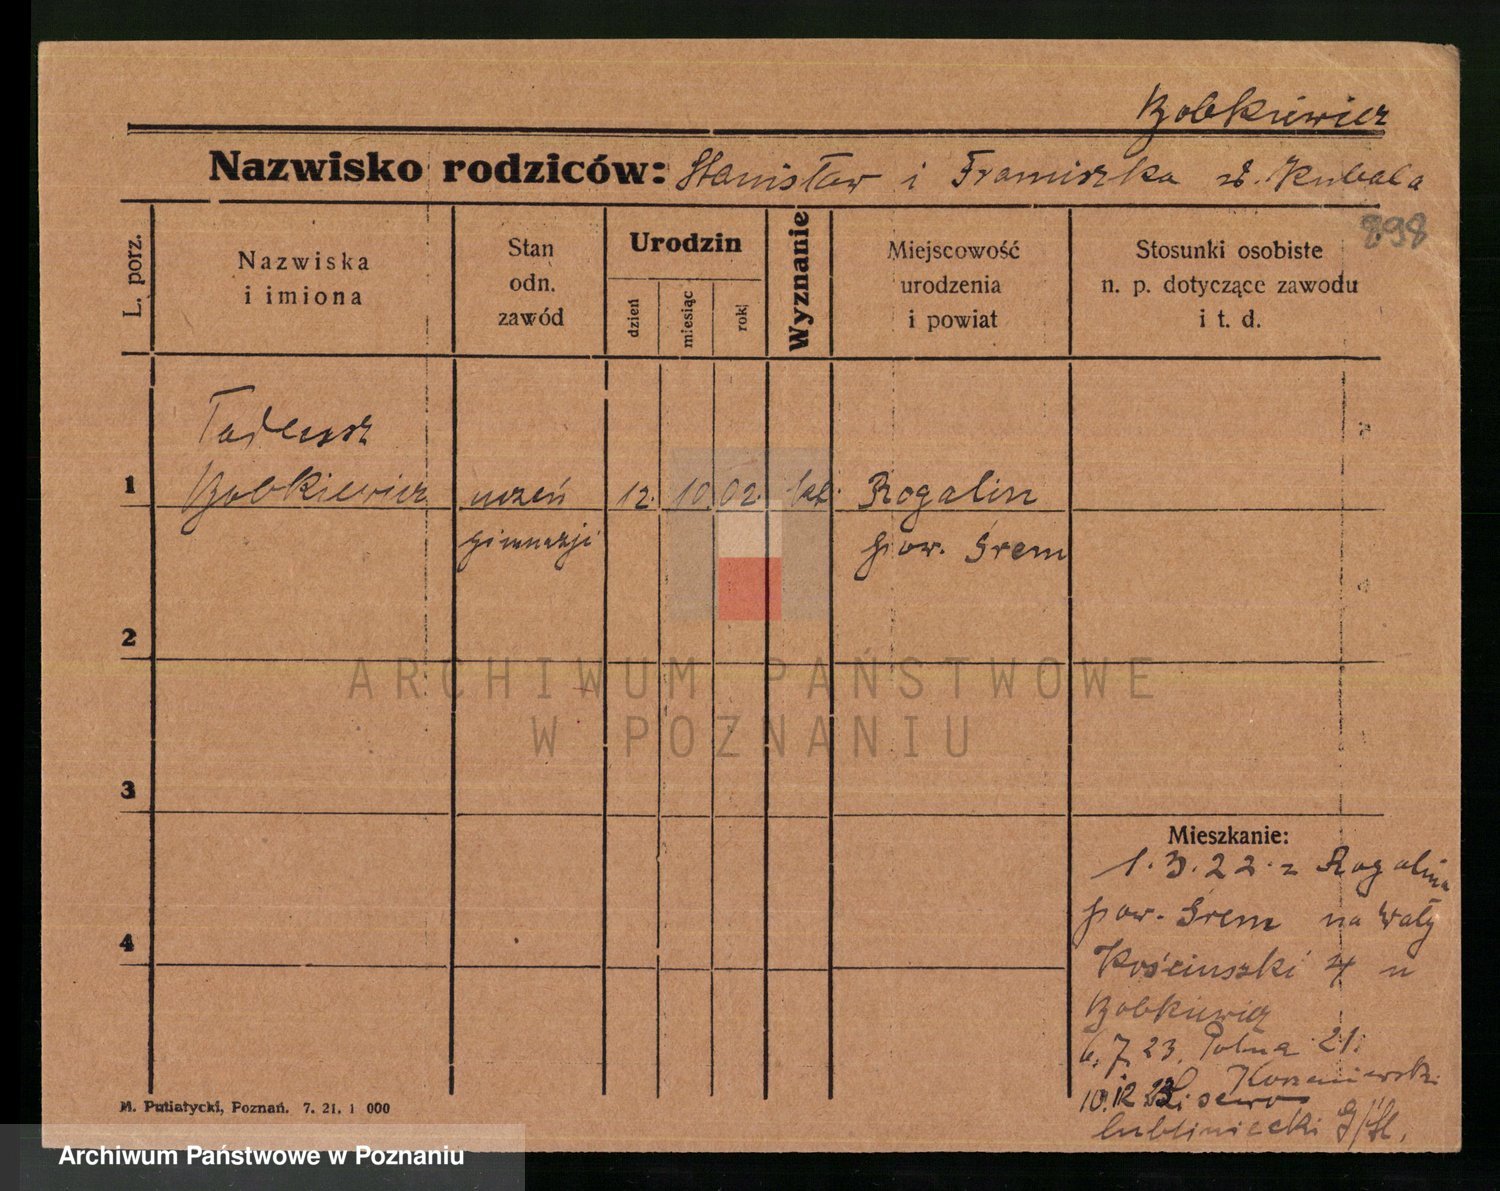 Bobkiewicz
Nazwisko rodziców: Stanisław i Franciszka z d. Kubala
898
L. porz.
Nazwiska
i imiona
Stan
odn.
zawód
Urodzin
dzień
miesiąc
rok
Wyznanie
Miejscowość
urodzenia
i powiat
Stosunki osobiste
n. p. dotyczące zawodu
i t. d.
Tadeusz
1 Bobkiewicz uczeń 12. 10 02. kat. Rogalin
gimnazji pow. Śrem
2
3
4
Mieszkanie:
1.3.22 z Rogalina
pow. Śrem na Wały
Kościuszki 4 u
Bobkiewicz
6.7.23. Polna 21.
10.12.23 Lisewo
lubliniecki G/Śl.
M. Putiatycki, Poznań. 7. 21. 1 000
ARCHIWUM PAŃSTWOWE
W POZNANIU
Archiwum Państwowe w Poznaniu